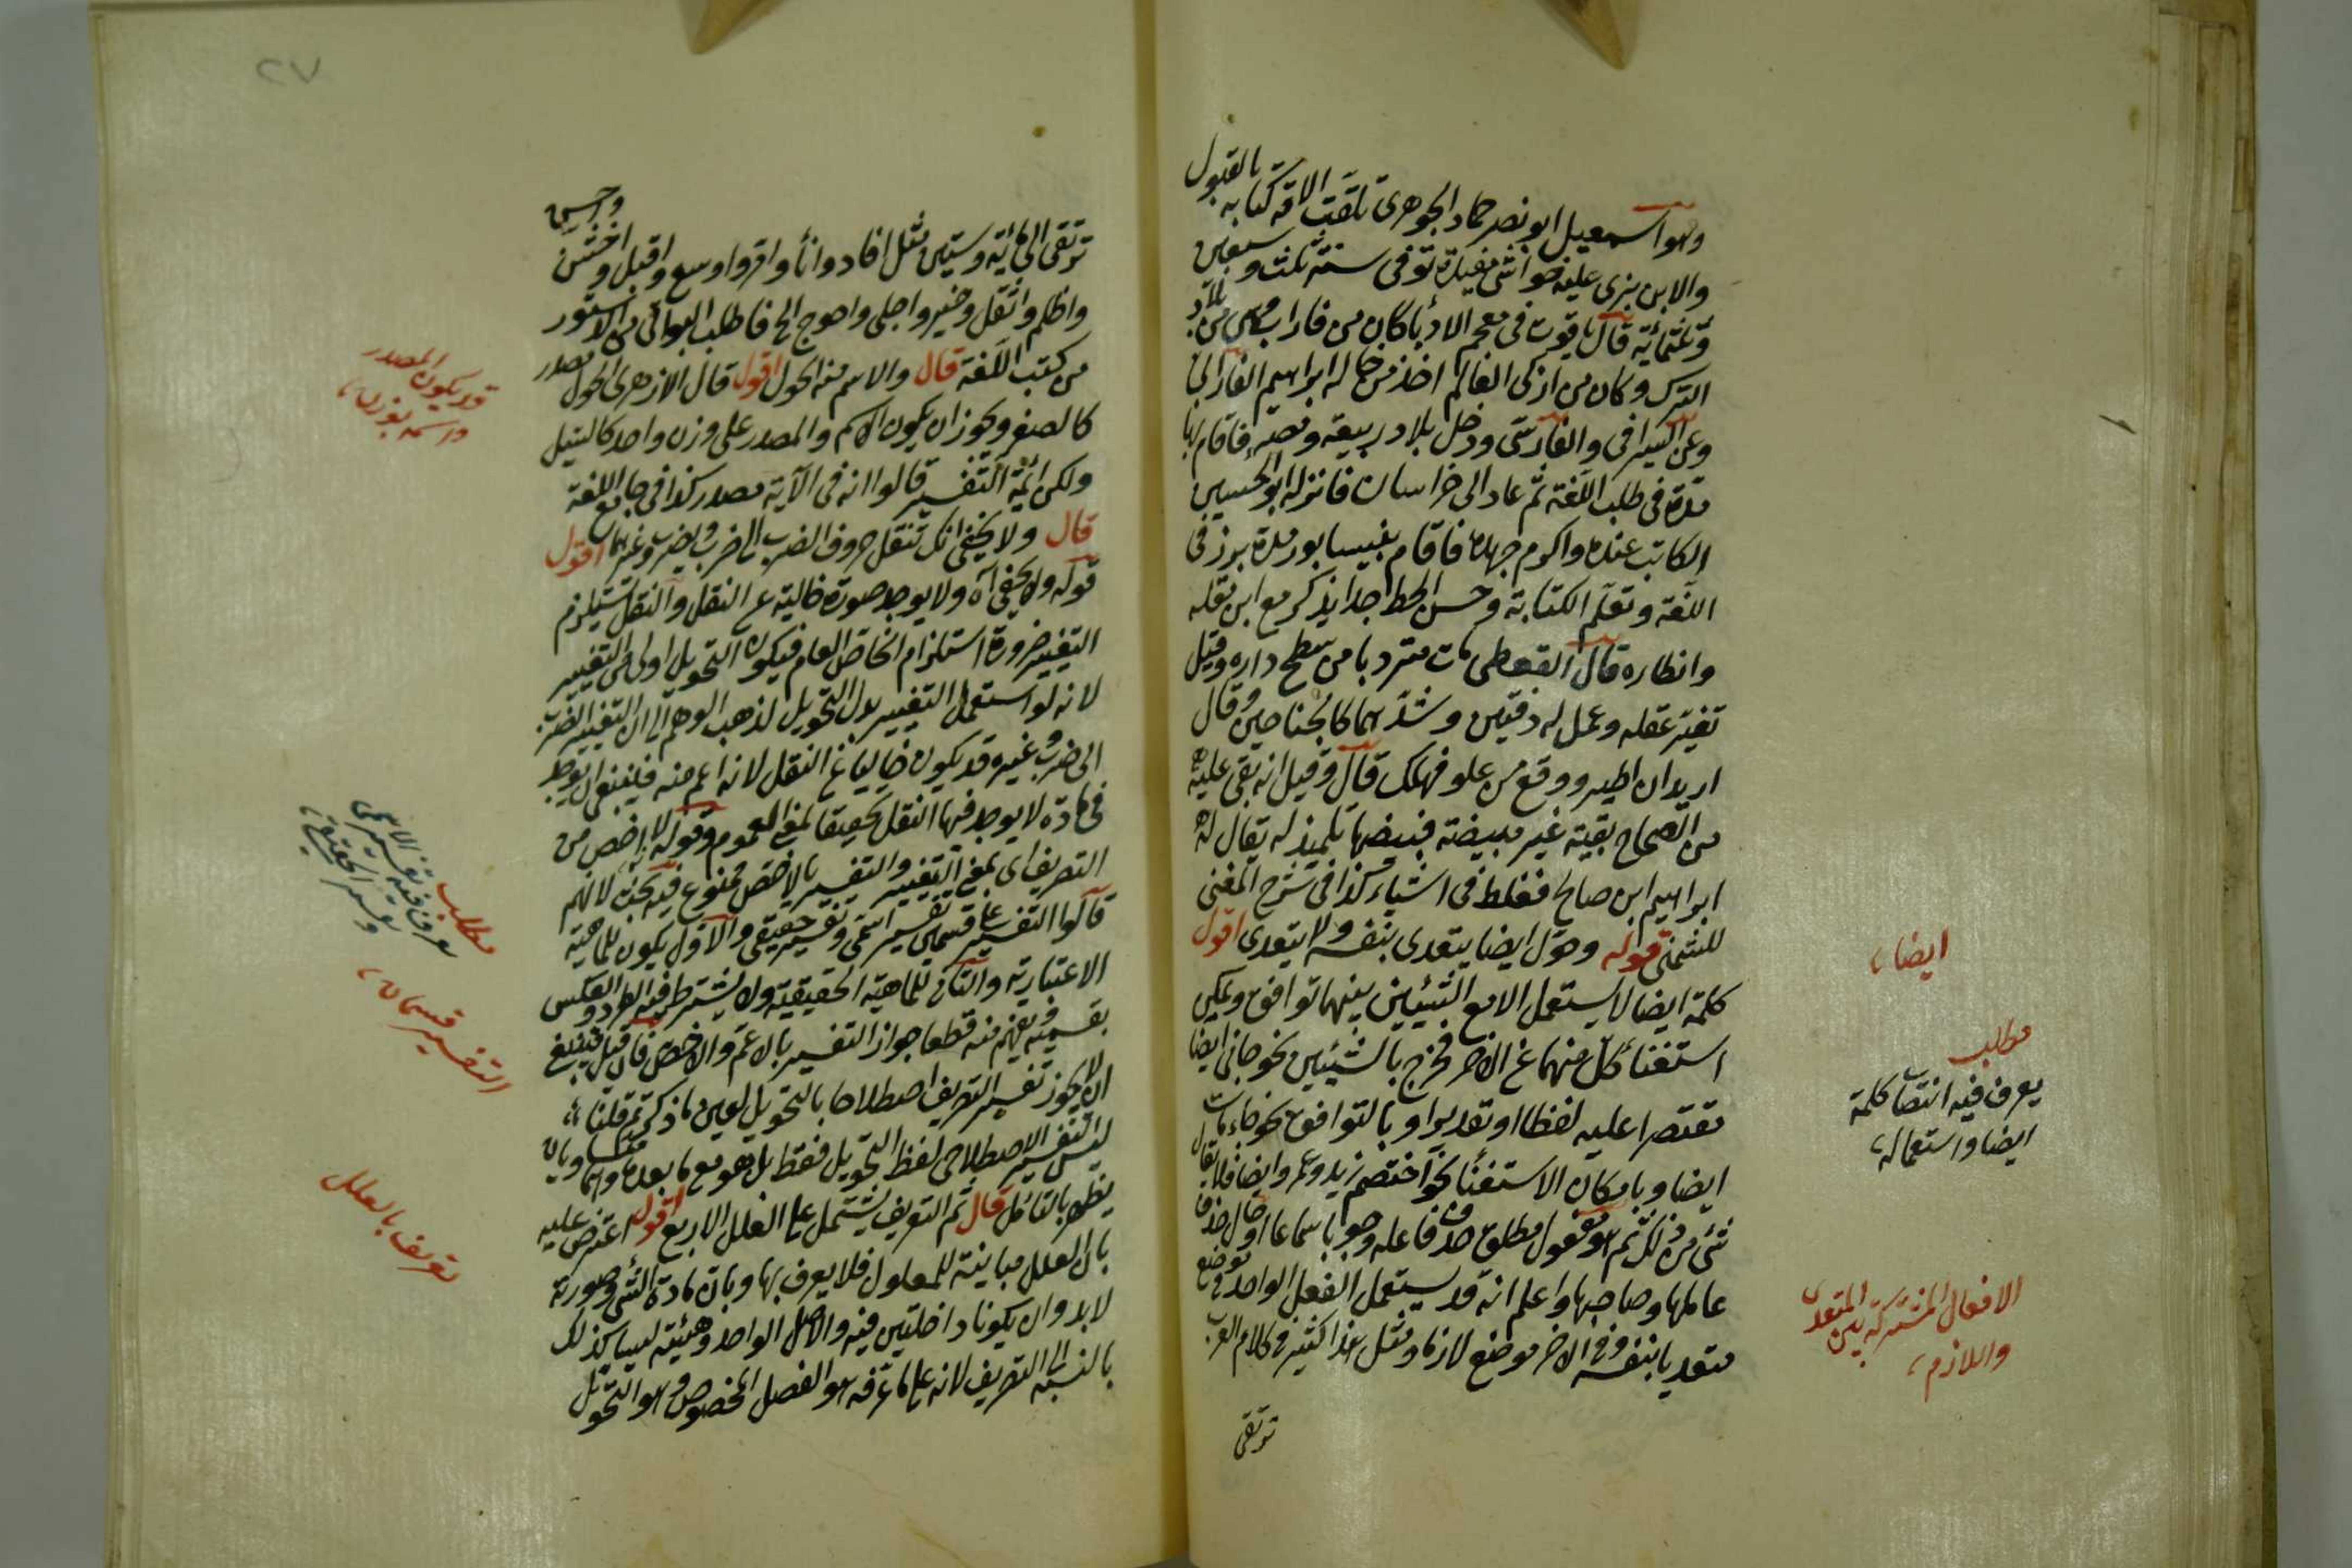 وهو اسمعيل ابو نصر حماد الجوهرى تلقت الامة كتابه بالقبول
والابن برى عليه حواشى مفيدة توفى سنة ثلث وسبعين
وثلثمائة قال ياقوت فى معجم الادبا كان من فاراب من بلاد
الترك وكان من ازكى العالم اخذ من خاله ابراهيم الفارابى
وعن السيرافى والفارسى ودخل بلاد ربيعة ومضر فاقام بها
مدة فى طلب اللغة ثم عاد الى خراسان فانزله ابو الحسين
الكاتب عنده واكرم جهده فاقام بنيسابور مدة برز فى
اللغة وتعلم الكتابة وحسن الخط جدا يذكر مع ابن مقله
وانظاره قال القفطى مات مترديا من سطح داره وقيل
تغير عقله وعمل له دفتين وشدهما كالجناحين وقال
اريد ان اطير ووقع من علو فهلك قال وقيل انه بقى عليه
من الصحاح بقية غير مبيضة فبيضها تلميذ له يقال له
ابراهيم ابن صالح فغلط فى اشياء كذا فى شرح المغنى
للشمنى قوله وحول ايضا يتعدى بنفسه ولا يتعدى اقول
كلمة ايضا لا يستعمل الا مع الشيئين بينهما توافق ويمكن
استغناء كل منهما عن الاخر فخرج بالشيئين نحو جانى ايضا
مقتصرا عليه لفظا او تقديرا وبالتوافق نحو جاء ومات
ايضا وبامكان الاستغناء نحو اختصم زيد وعمرو ايضا فلا يقال
شئ من ذلك ثم هو مفعول مطلق حذف عامله وجوبا سماعا او حال حذف
عاملها وصاحبها واعلم انه قد يستعمل الفعل الواحد فى موضع
متعديا بنفسه وفى الاخر موضع لازما ومثل هذا كثير فى كلام العرب
ترتقى
ايضا
مطلب
يعرف فيه انتصاب كلمة
ايضا واستعماله
الافعال المشتركة بين المتعدى
واللازم
٢٧
ترتقى الى مائة وستين مثل افاد وانأ واقروا وسع واقبل واخشن
واظلم واثقل وخير واجلى واحوج الخ فاطلب البواقى من
من كتب اللغة قال والاسم منه الحول اقول قال الازهرى الحول مصدر
كالصغر ويجوز ان يكون الاسم والمصدر على وزن واحد كالنيل
ولكن ائمة التفسير قالوا انه فى الآية مصدر كذا فى جامع اللغة
قال ولا يخفى انك تنقل حروف الضرب الى ضرب ويضرب وغيرهما اقول
قوله ولا يخفى آه ولا يوجد صورة خالية عن النقل والنقل يستلزم
التغيير ضرورة استلزام الخاص العام فيكون التحويل اولى من التغيير
لانه لو استعمل التغيير بدل التحويل لذهب الوهم الى ان التغيير الضرب
الى ضرب وغيره قد يكون خاليا عن النقل لانه اعم منه فلينبغى ان يوجد
فى مادة لا يوجد فيها النقل تحقيقا لمعنى العموم وقوله لا اخص من
التصريف اى بمعنى التغيير والتفسير بالاخص ممنوع فيه بحث لانهم
قالوا التفسير على قسمين تفسير اسمى وتفسير حقيقى والاول يكون للماهية
الاعتبارية والثانى للماهية الحقيقية ولا يشترط فيه الطرد والعكس
بقسميه وفهم منه قطعا جواز التفسير بالاعم والاخص فان قيل فينبغى
ان لا يجوز تفسير التصريف اصطلاحا بالتحويل لعين ما ذكرتم قلنا
ليس التفسير الاصطلاحى لفظ التحويل فقط بل هو مع ما بعده وانهما متساويان
يظهر بالتامل قال ثم التعريف يشتمل على العلل الاربع اقول اعترض عليه
بان العلل مباينة للمعلول فلا يعرف بها وبان مادة الشئ وصورته
لابد وان يكونا داخلتين فيه والاصل الواحد وهيئته ليسا كذلك
بالنسبة الى التصريف لانه على ما عرفه هو الفصل المخصوص وهو التحويل
قد يكون المصدر
واسمه بوزن
مطلب
يعرف فيه تفسير الاسمى
وتفسير الحقيقى
التفسير قسمان
تعريف بالعلل